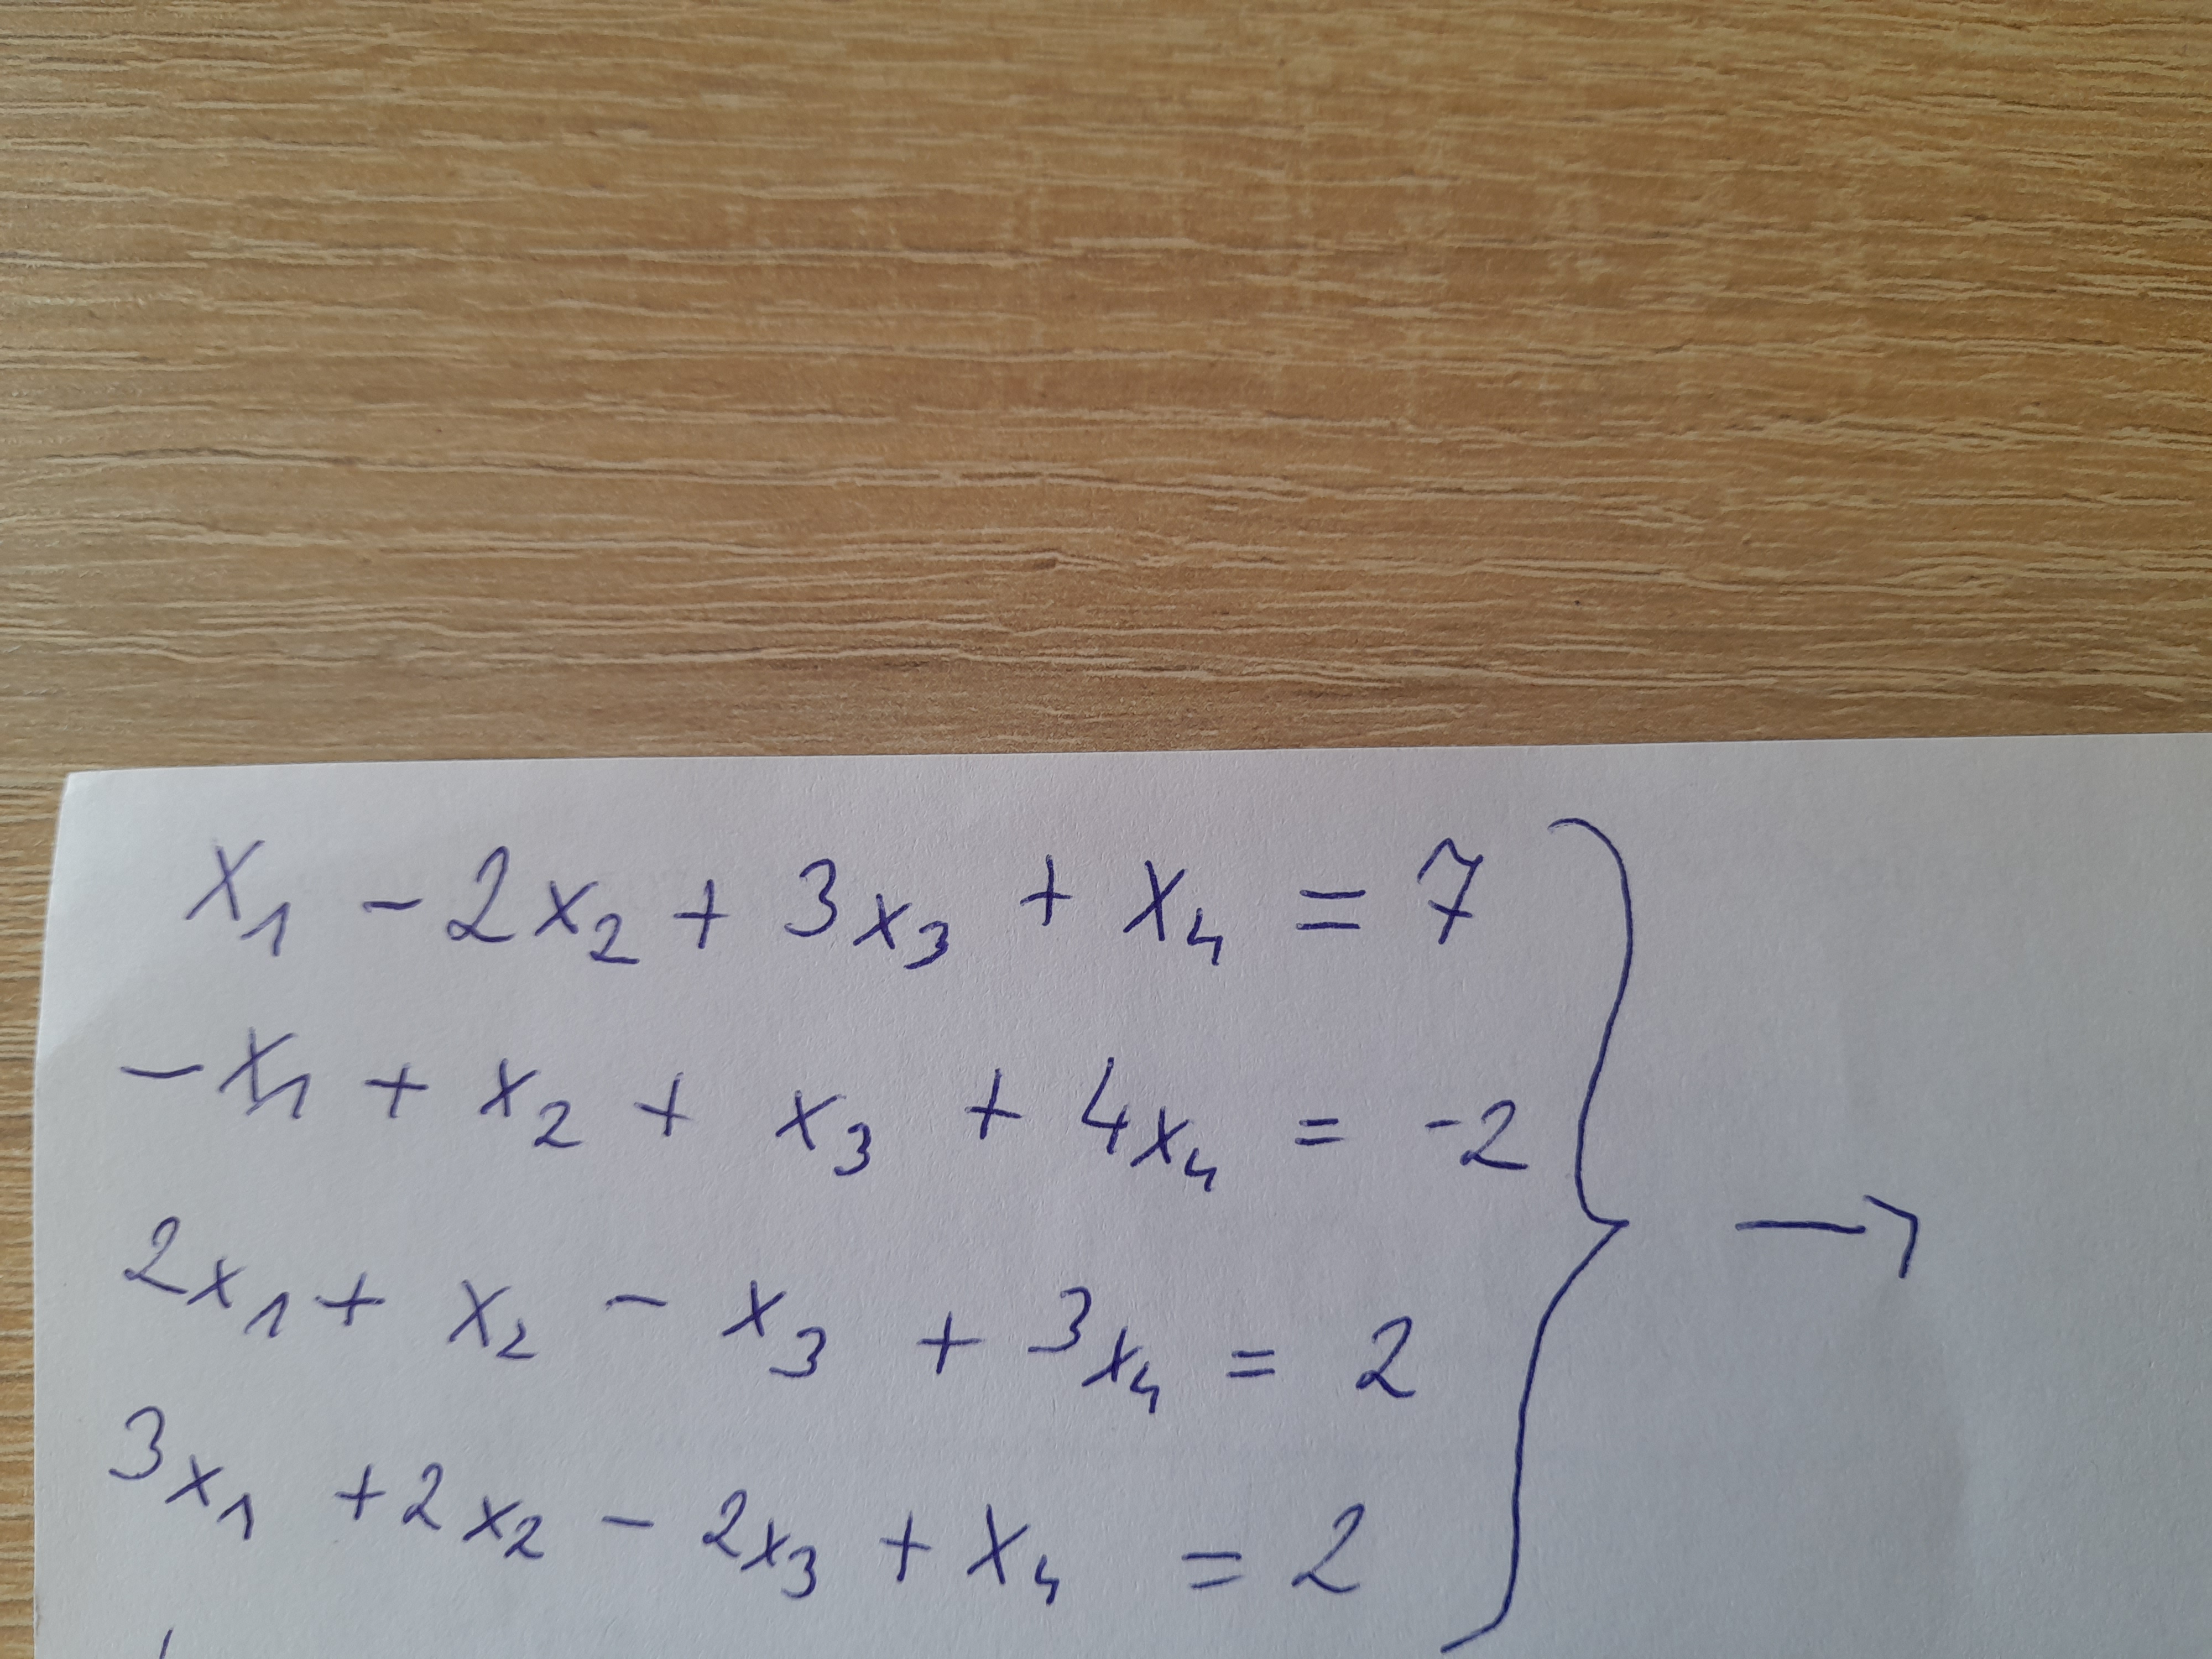 x₁ - 2x₂ + 3x₃ + x₄ = 7
-x₁ + x₂ + x₃ + 4x₄ = -2
2x₁ + x₂ - x₃ + 3x₄ = 2
3x₁ + 2x₂ - 2x₃ + x₄ = 2
} →